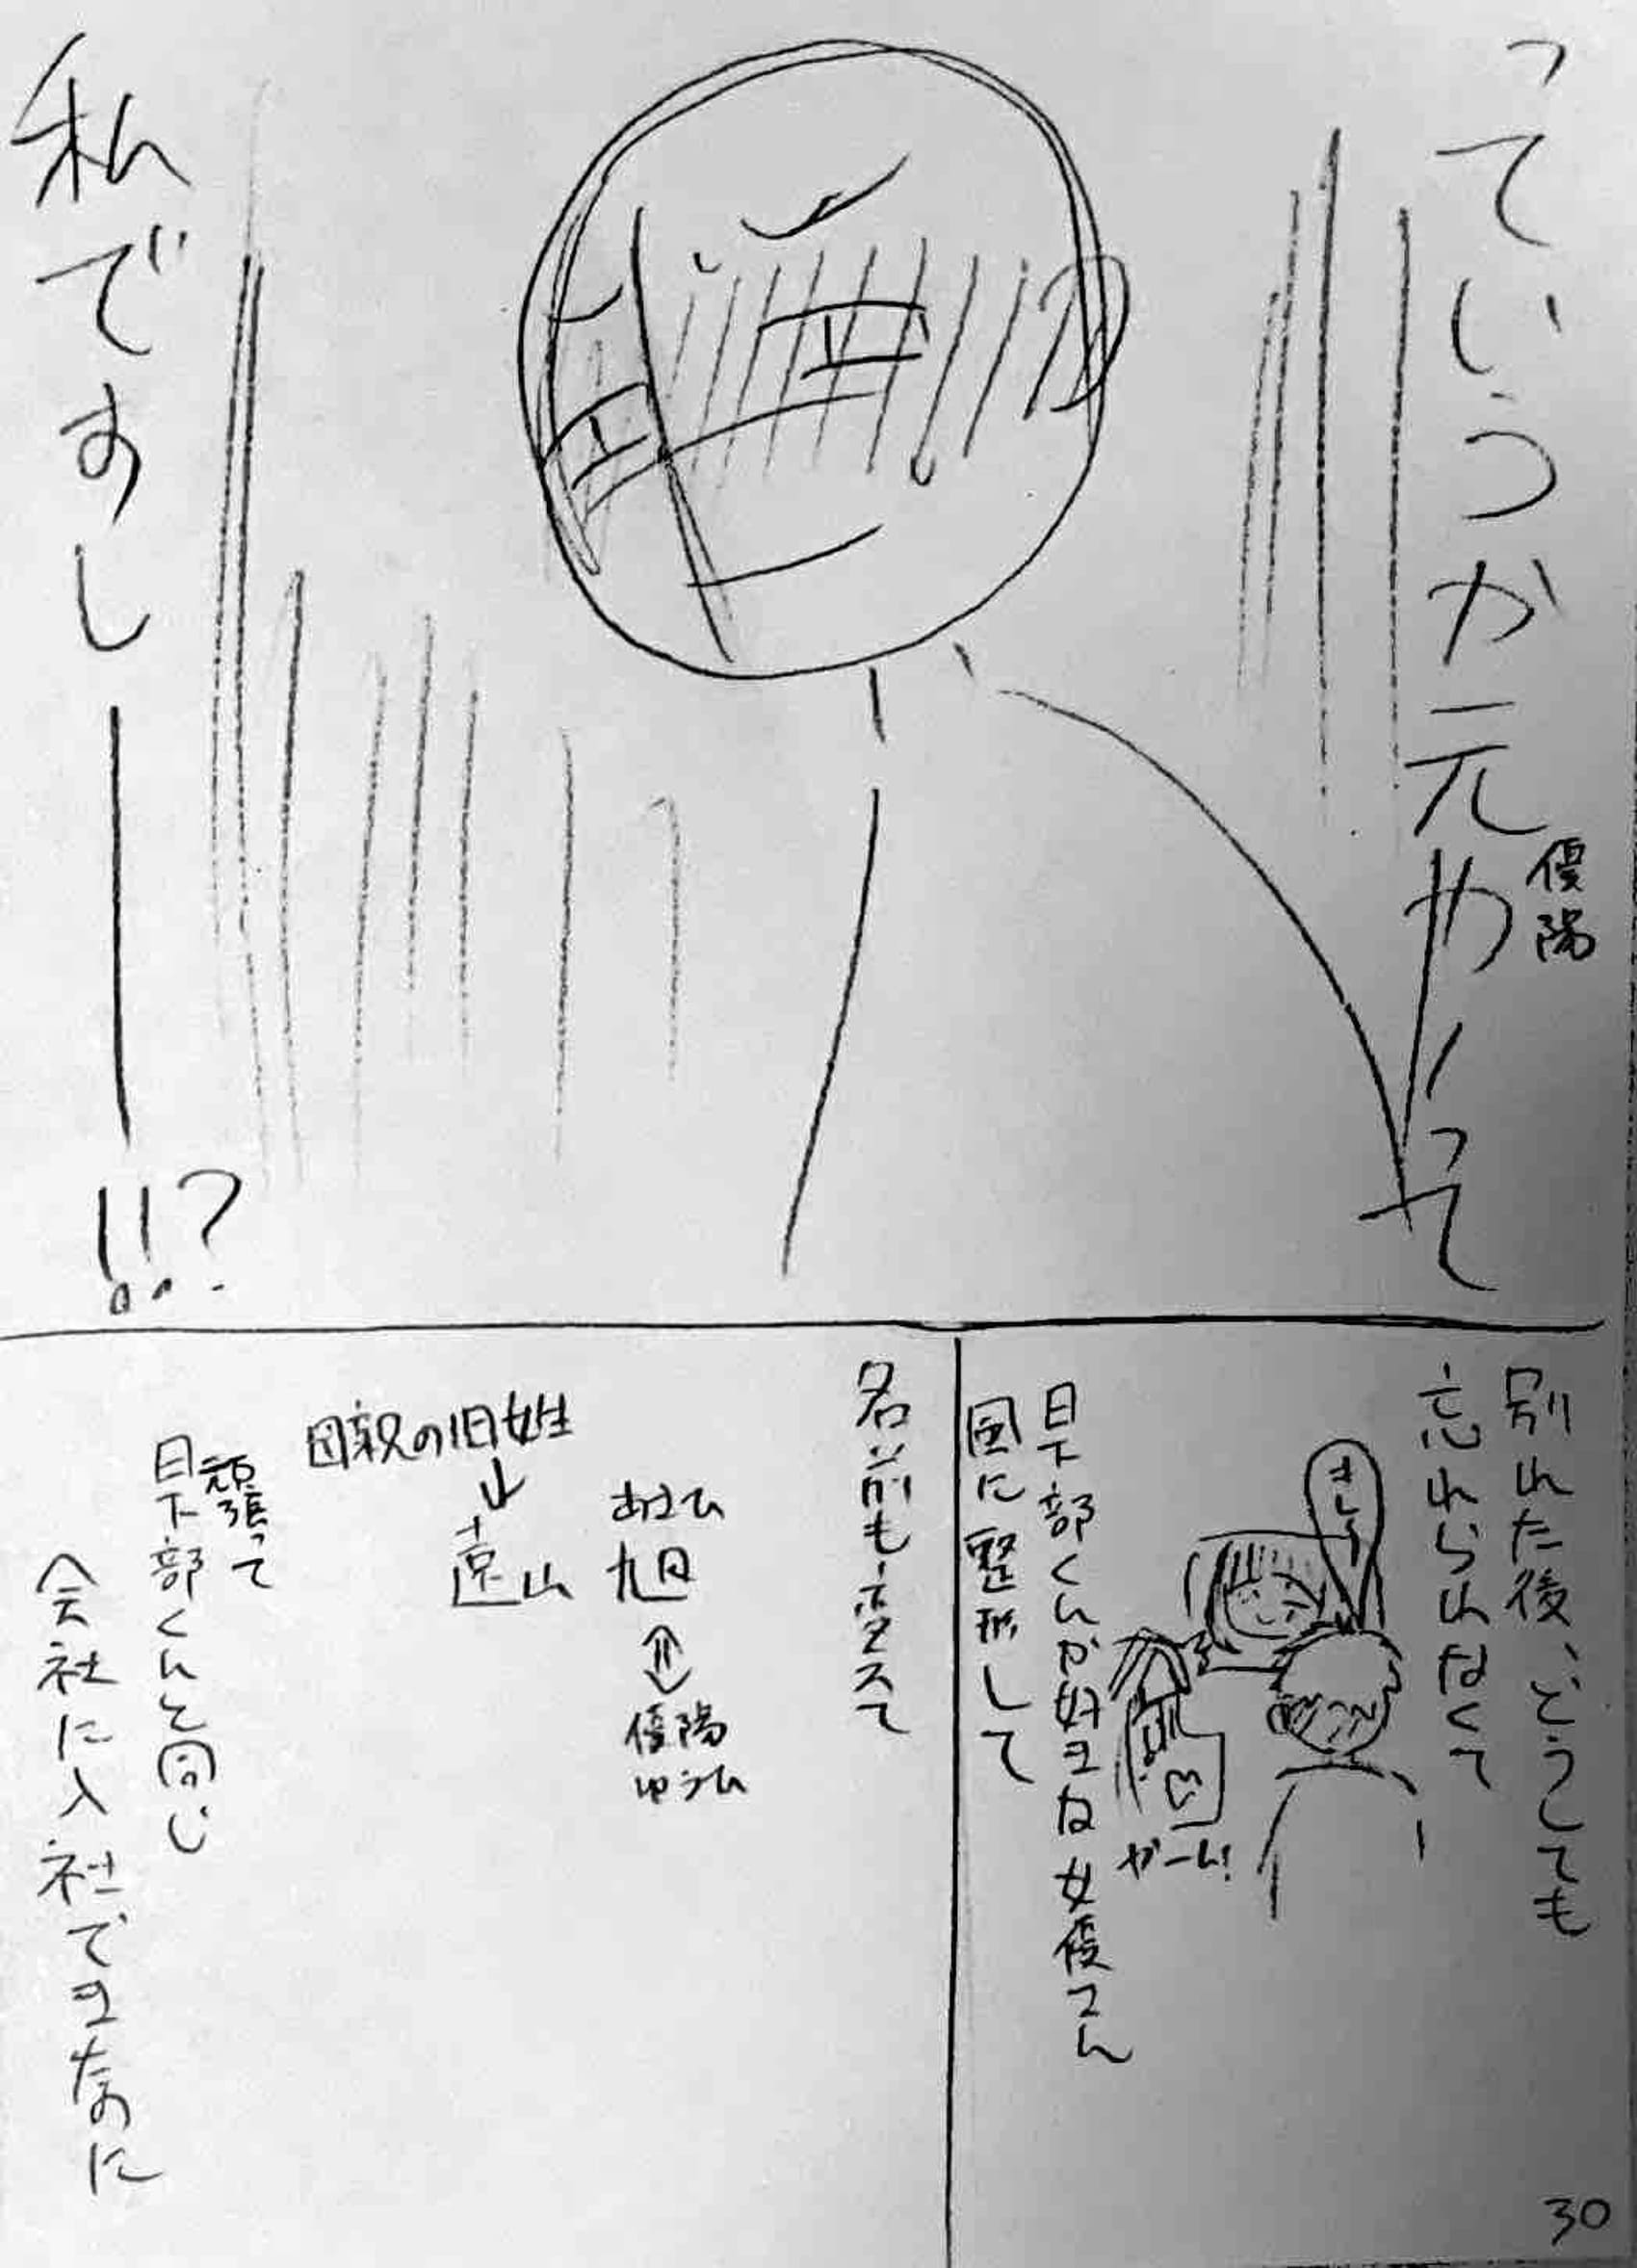 っていうか元カノって
優陽
私ですしー!!?
別れた後、どうしても
忘れられなくて
ガーン!
日下部くんが好きな女優さん
風に整形して
名前も変えて
あさひ
旭
⇕
優陽
ゆうひ
母親の旧姓
↓
遠山
頑張って
日下部くんと同じ
会社に入社できたのに
30